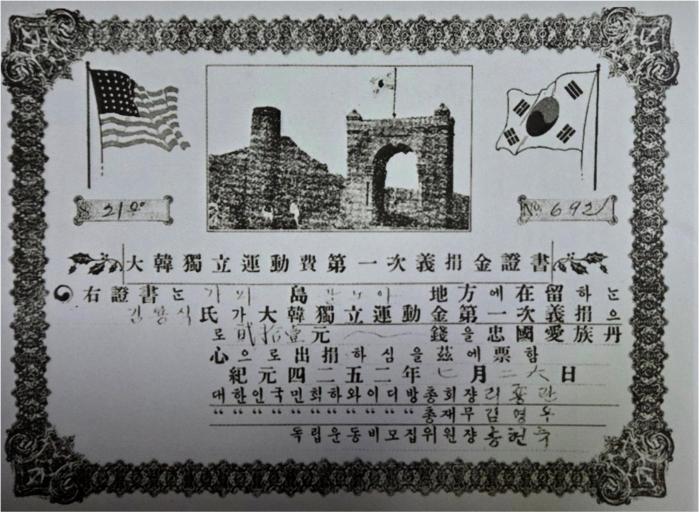 21⁰⁰
No 692
大韓獨立運動費第一次義捐金證書
右證書는 島 地方에在留하는
氏가大韓獨立運動金第一次義捐으
로貳拾壹元 錢을忠國愛族丹
心으로出捐하심을玆에票함
紀元四二五二年七月二六日
대한인국민회하와이디방총회쟝리죵관
" " " " " " " " " " " 총재무김영우
독립운동비모집위원쟝송헌주